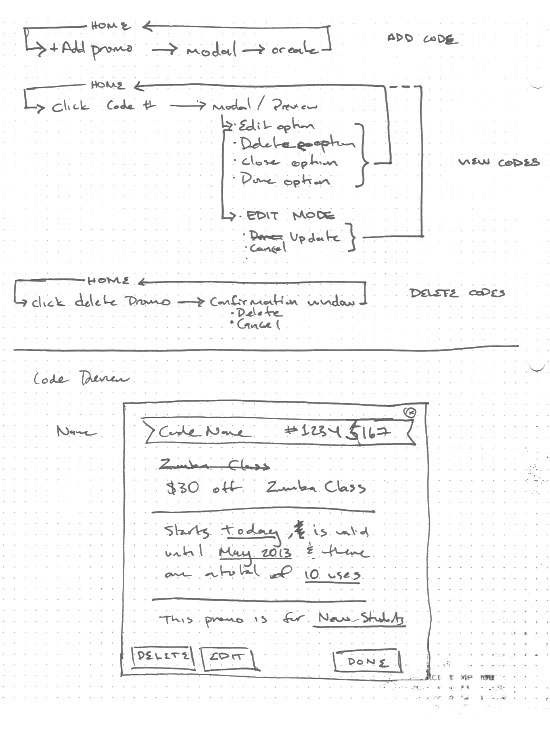 HOME
+Add promo → modal → create
ADD CODE
HOME
Click Code # → Modal / Preview
· Edit option
· Delete option
· Close option
· Done option
VIEW CODES
· EDIT MODE
· Done Update
· Cancel
HOME
click delete Promo → Confirmation window
· Delete
· Cancel
DELETE CODES
Code Preview
Name
Code Name #1234 $167
Zumba Class
$30 off Zumba Class
Starts today, & is valid
until May 2013 & there
are a total of 10 uses.
This promo is for New Students
DELETE EDIT DONE